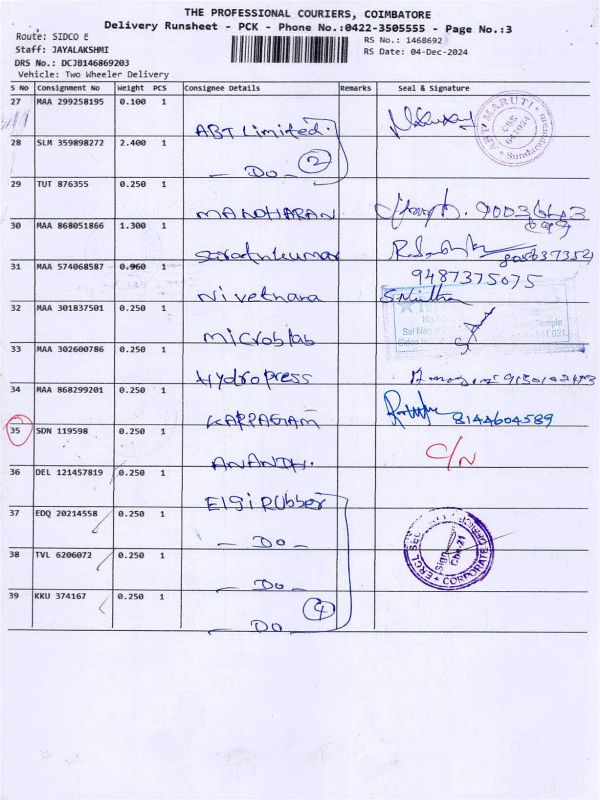 THE PROFESSIONAL COURIERS, COIMBATORE
Delivery Runsheet - PCK - Phone No.:0422-3505555 - Page No.:3
Route: SIDCO E
RS No.: 1468692
Staff: JAYALAKSHMI
RS Date: 04-Dec-2024
DRS No.: DCJB146869203
Vehicle: Two Wheeler Delivery
S No Consignment No Weight PCS Consignee Details Remarks Seal & Signature
27 MAA 299258195 0.100 1 ABT Limited.
ABT MARUTI
Sundarapuram
28 SLM 359898272 2.400 1 - Do - 2
29 TUT 876355 0.250 1 MANOHARAN
30 MAA 868051866 1.300 1 Sarathkumar
31 MAA 574068587 0.960 1 Nivethana 9487375075
32 MAA 301837501 0.250 1 Microblab
33 MAA 302600786 0.250 1 Hydropress
34 MAA 868299201 0.250 1 KARPAGAM 8144604589
35 SDN 119598 0.250 1 ANANDH. C/N
36 DEL 121457819 0.250 1 Elgi Rubber
37 EDQ 20214558 0.250 1 - Do -
CORPORATE
38 TVL 6206072 0.250 1 - Do -
39 KKU 374167 0.250 1 - Do 4